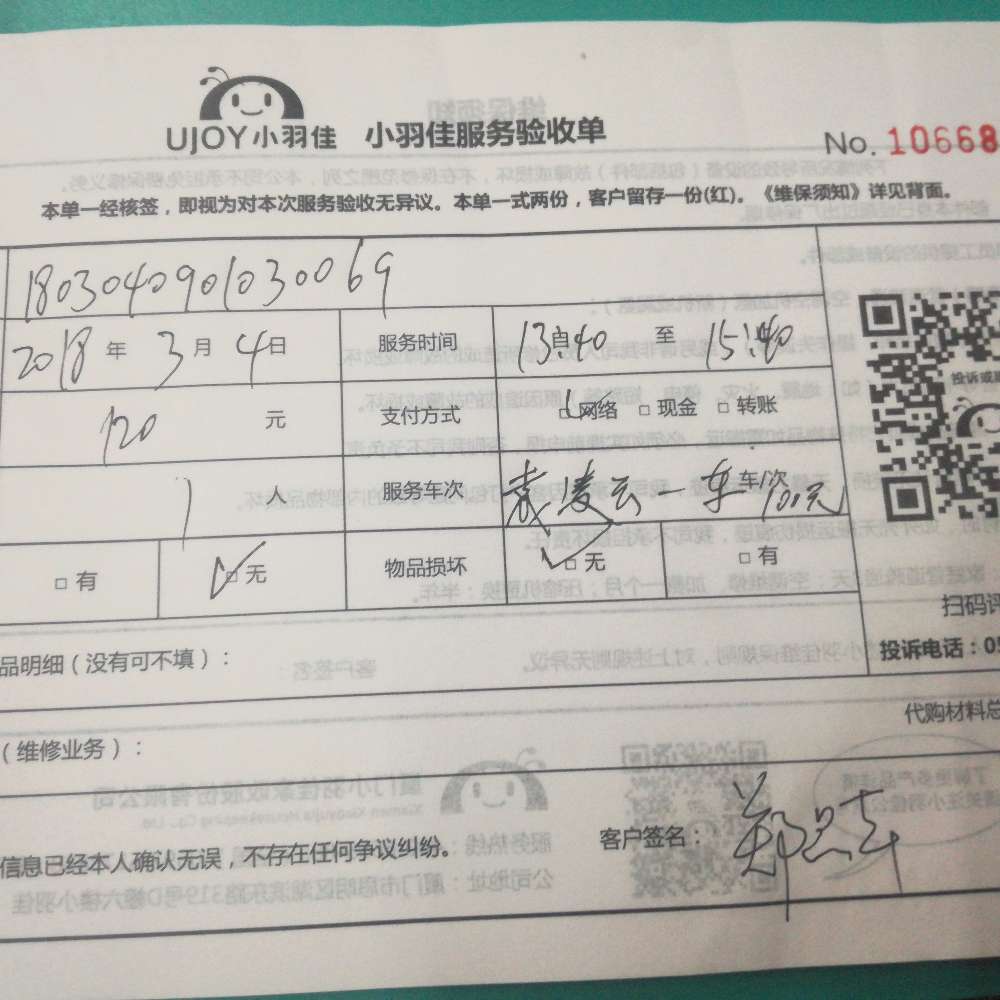 UJOY小羽佳 小羽佳服务验收单
No. 10668
本单一经核签，即视为对本次服务验收无异议。本单一式两份，客户留存一份(红)。《维保须知》详见背面。
1803040901030069
2018 年 3 月 4 日 服务时间 13 自:40 至 15:40
120 元 支付方式 □网络 □ 现金 □ 转账
投诉或
1 人 服务车次 凌云一车 车/次 100元
□ 有 □ 无 物品损坏 □ 无 □ 有
扫码评
品明细（没有可不填）：
投诉电话：05
代购材料总
（维修业务）：
信息已经本人确认无误，不存在任何争议纠纷。 客户签名：